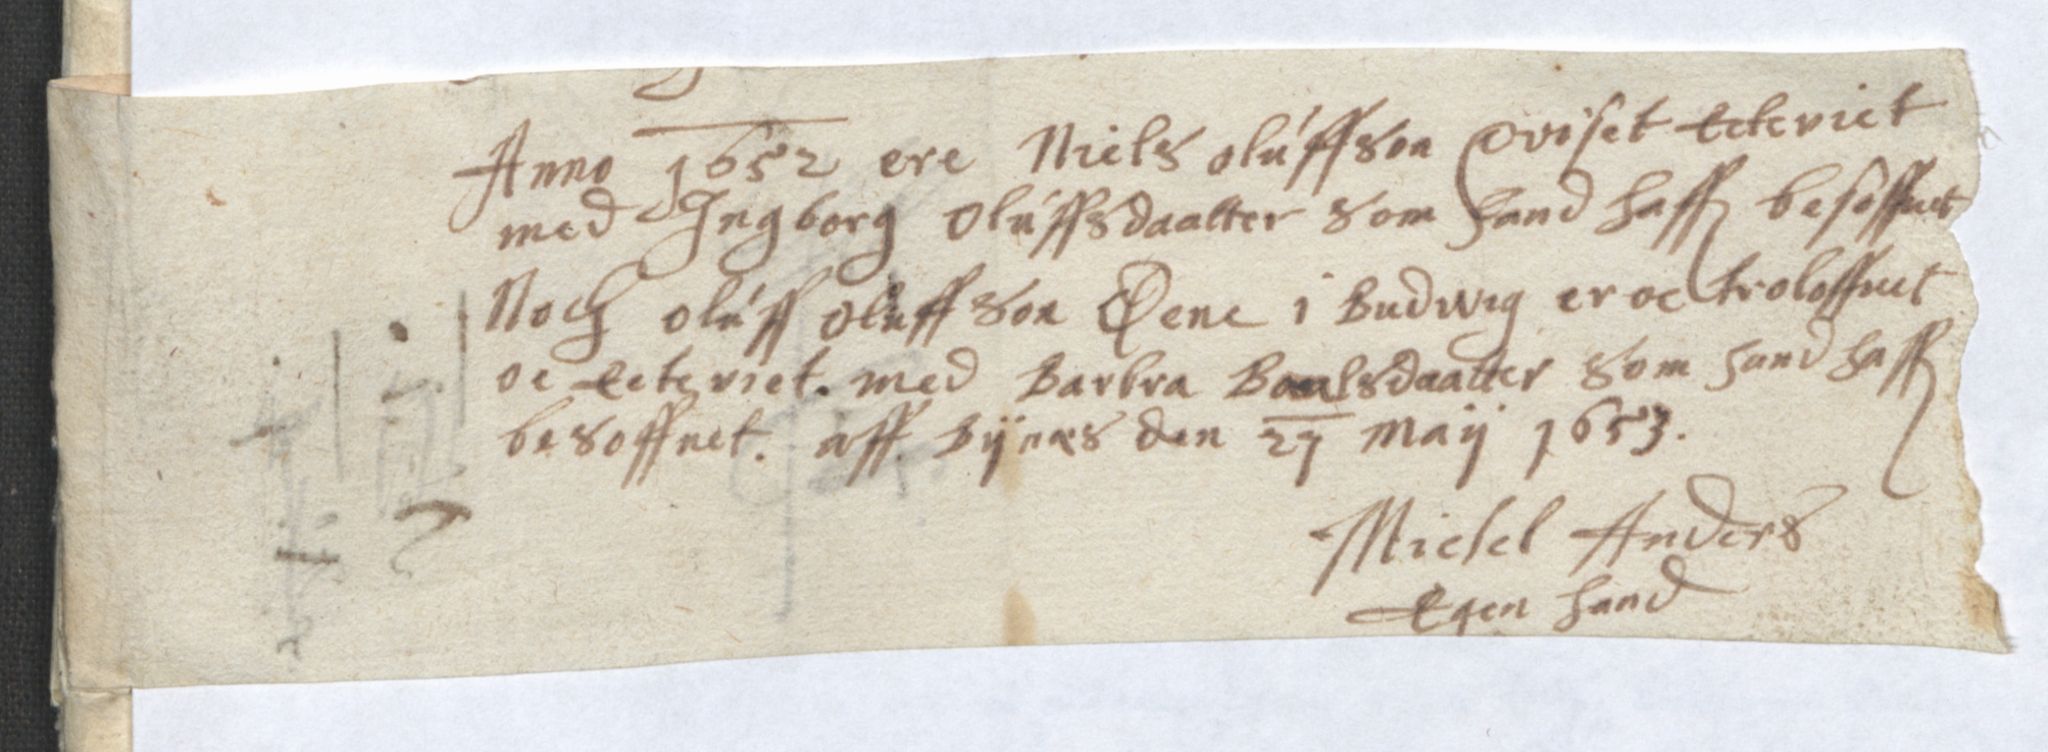 Anno 1652 ere Niels olúffson Qviset Ecteviet
med Ingborg olúffsdaatter som hand haff besoffuet
Noch olúff olúffson Øene i Budwig er oc troloffuet
oc Ecteviet. med Barbra Baalsdaatter som hand haff
besoffuet. aff. Bÿnæs den 27 Maij 1653.
Michel Anders
Egen hand